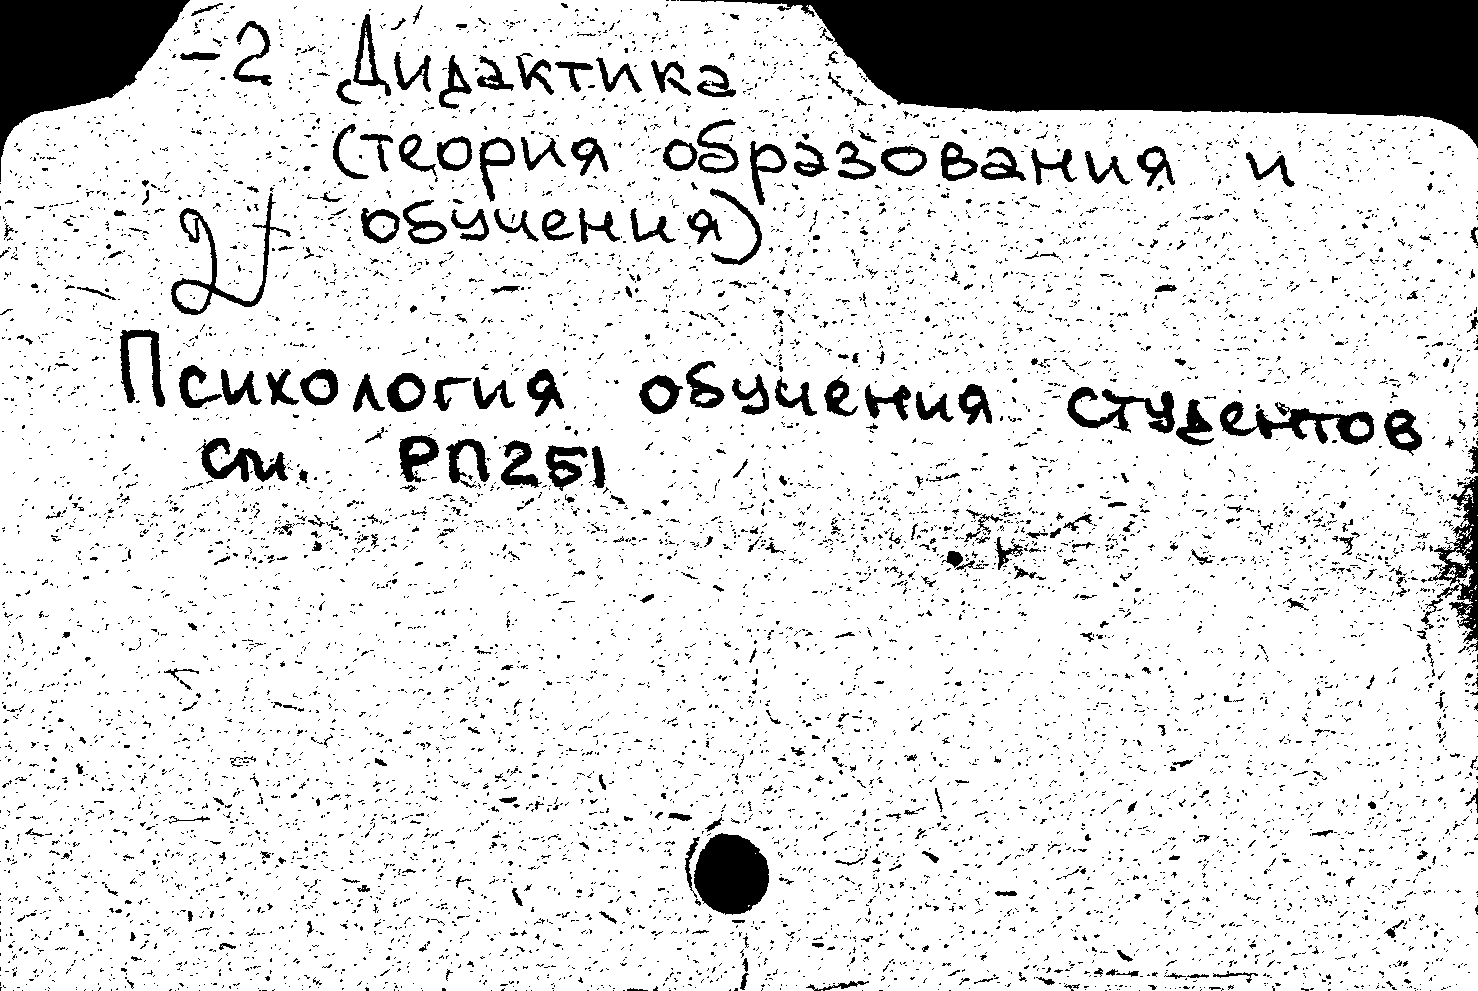 -2 Дидактика
(теория образования и
обучения)
Психология обучения студентов
см. РП251